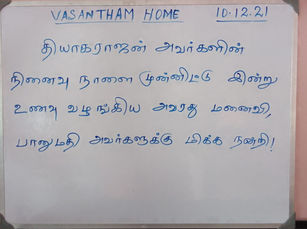 VASANTHAM HOME 10.12.21
தியாகராஜன் அவர்களின்
நினைவு நாளை முன்னிட்டு இன்று
உணவு வழங்கிய அவரது மனைவி,
பானுமதி அவர்களுக்கு மிக்க நன்றி!